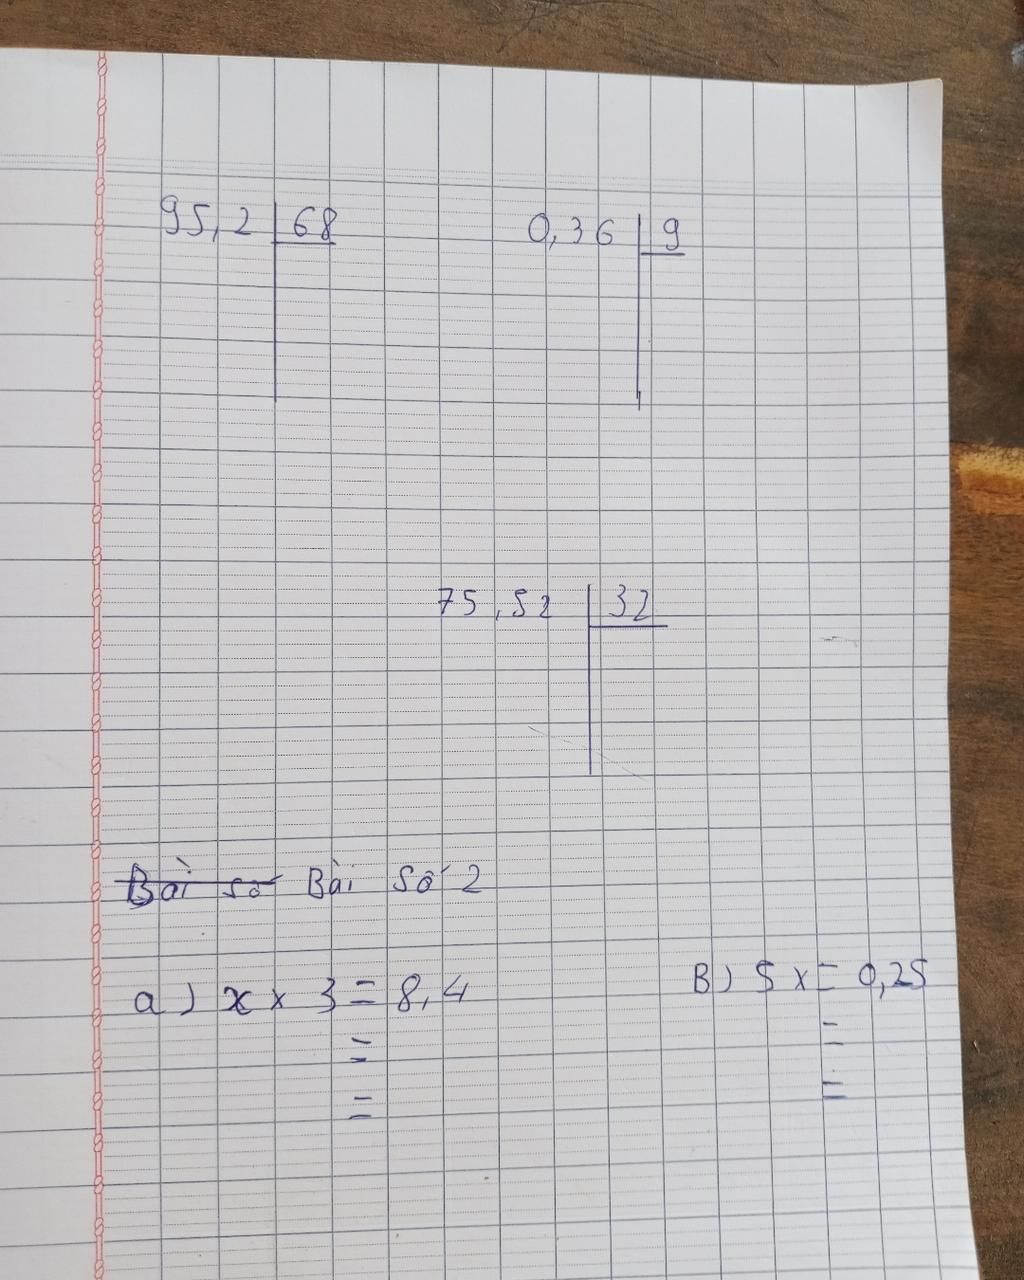 95,2 | 68
0,36 | 9
75,52 | 32
Bài số Bài số 2
a) x x 3 = 8,4
B) 5 x = 0,25
=
=
=
=